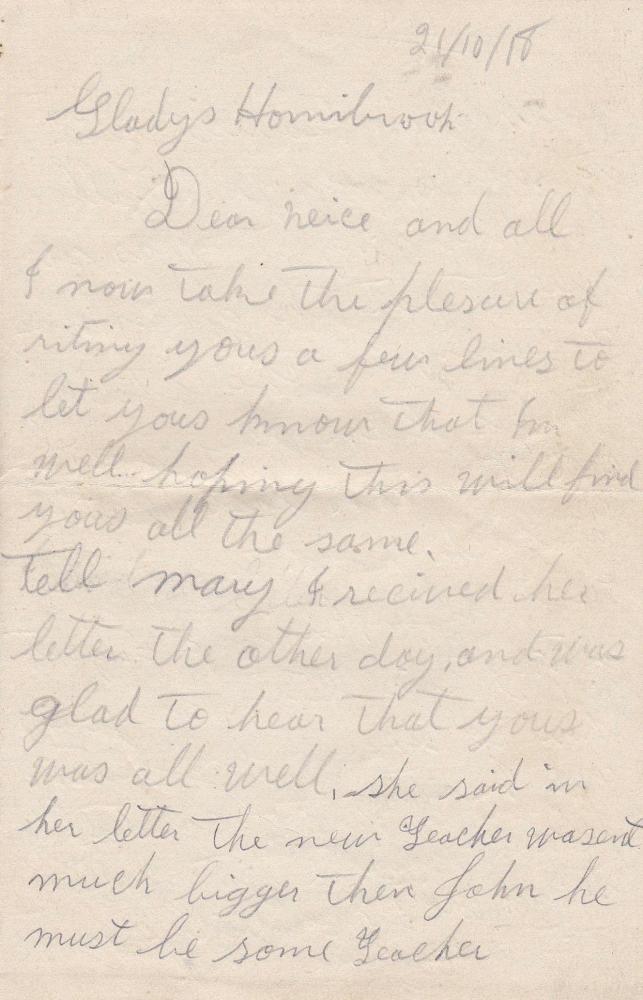 21/10/18
Gladys Hornibrook
Dear neice and all
I now take the plesure of
riting yous a few lines to
let yous know that Im
well hoping this will find
yous all the same.
tell mary I recived her
letter the other day, and was
glad to hear that yous
was all well, she said in
her letter the new Teacher wasent
much bigger then John he
must be some Teacher